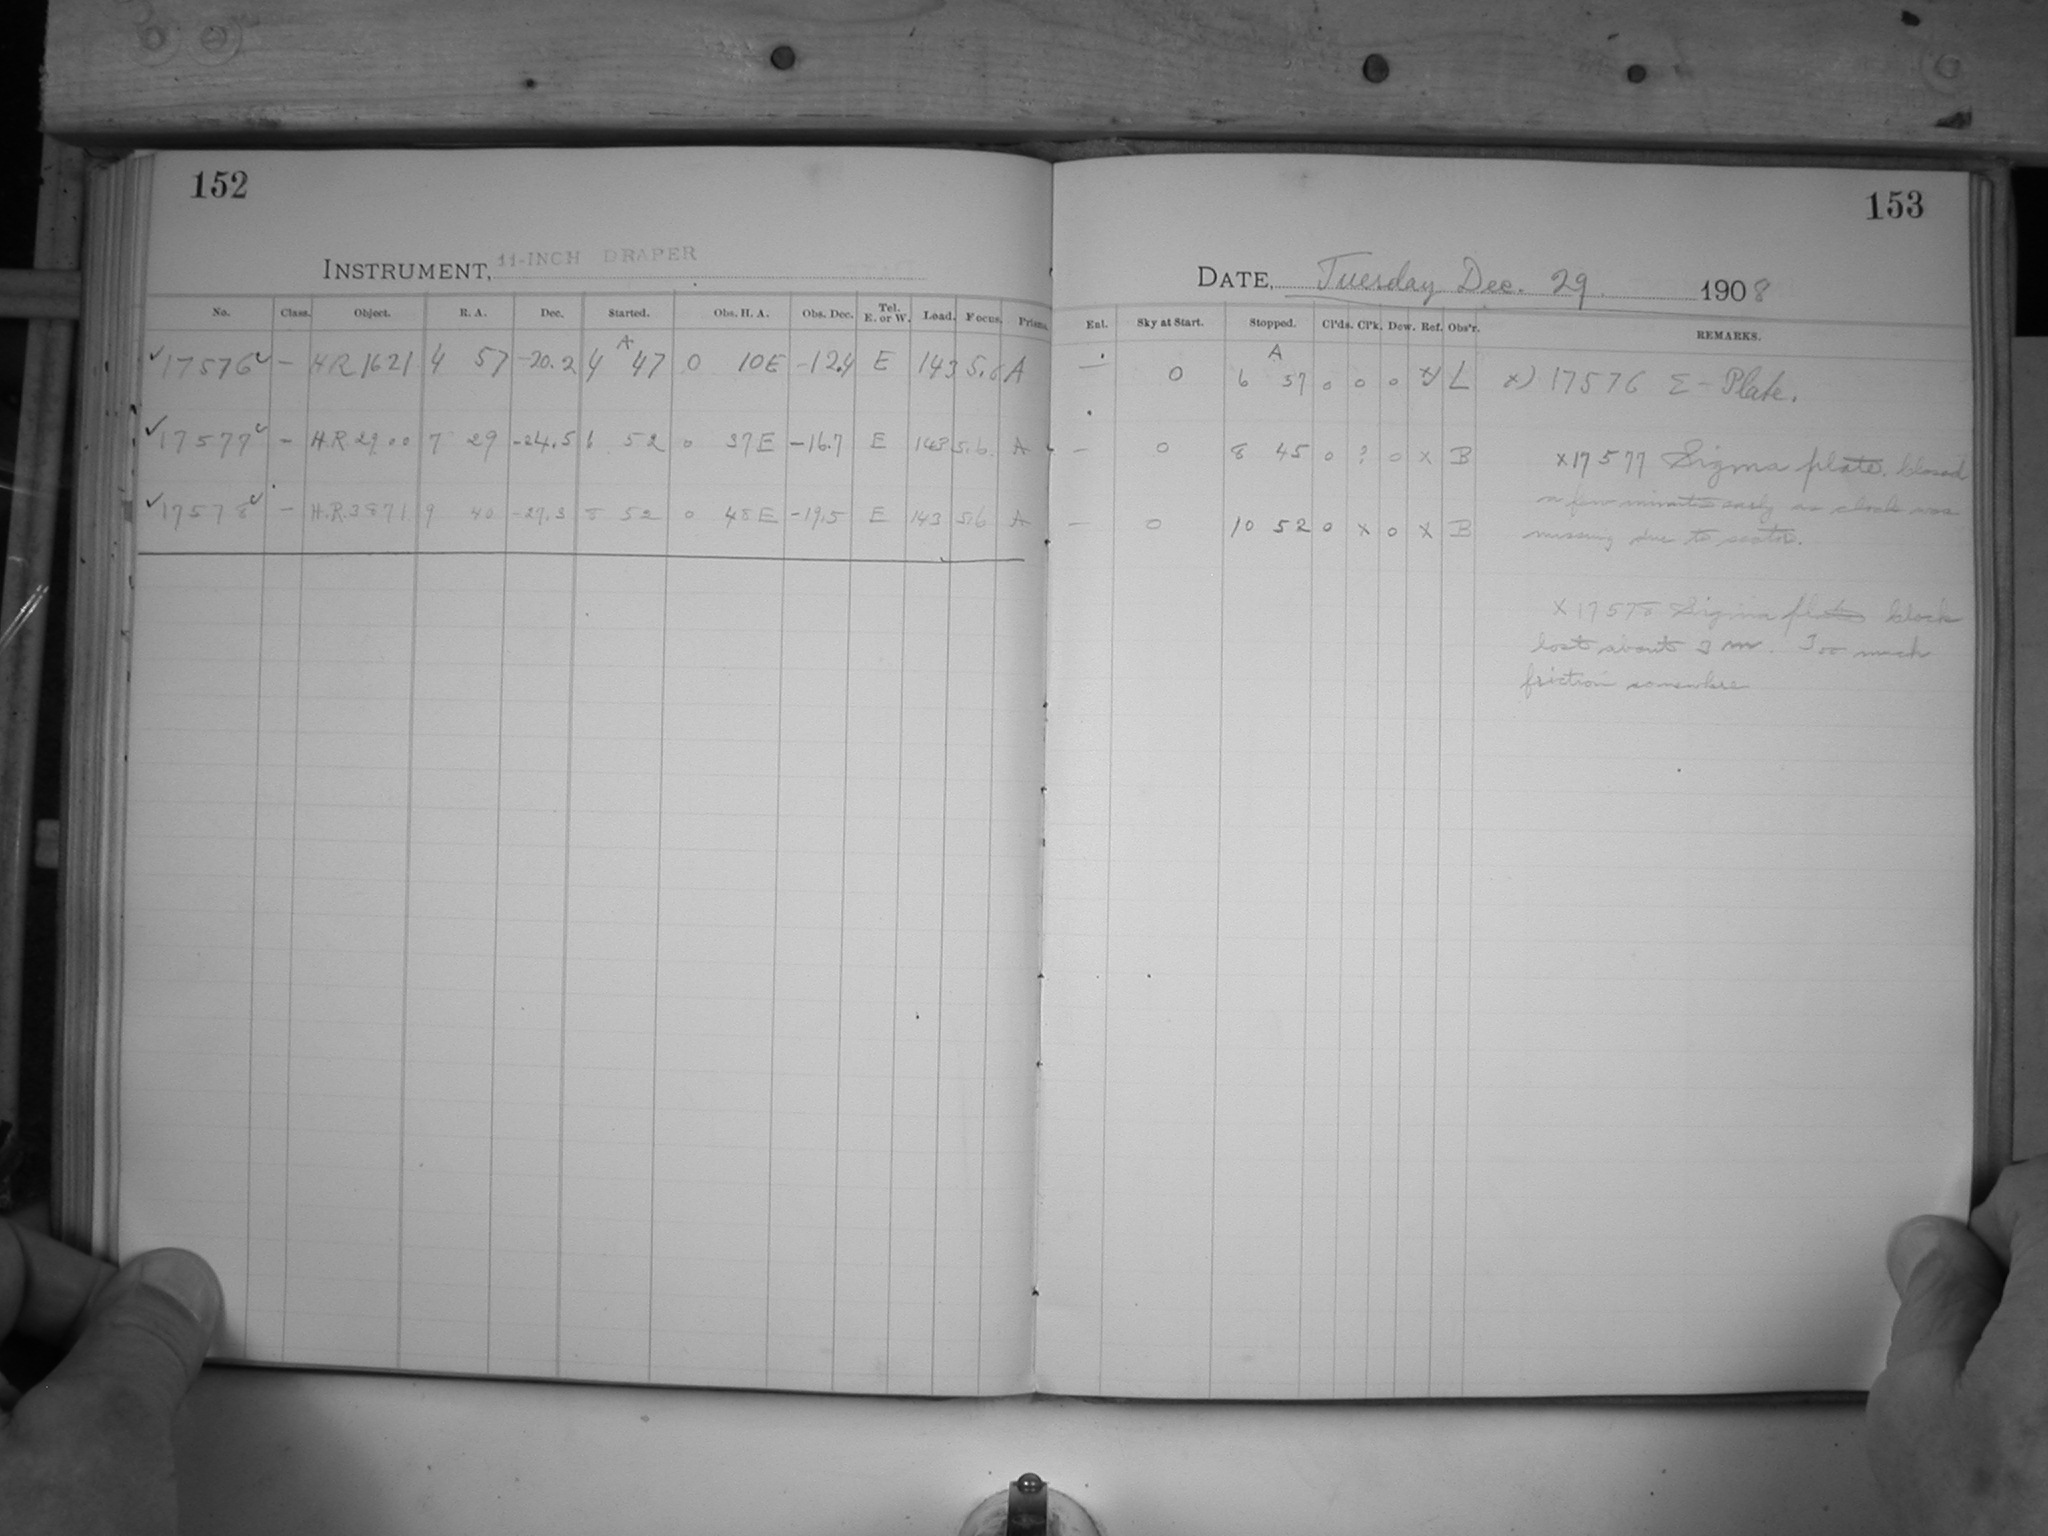 152
INSTRUMENT, 11-INCH DRAPER
No. Class. Object. R. A. Dec. Started. Obs. H. A. Obs. Dec. Tel. E. or W. Load. Focus. Prisms.
A
✓17576✓ — HR 1621 4 57 -20.2 4 47 0 10E -12.4 E 143 5.6 A
✓17577✓ — H.R 2900 7 29 -24.5 6 52 0 37E -16.7 E 143 5.6. A
✓17578✓ — H.R. 3871 9 40 -27.3 8 52 0 48E -19.5 E 143 5.6 A
153
DATE, Tuesday Dec. 29 1908
Enl. Sky at Start. Stopped. Cl'ds. Cl'k. Dew. Ref. Obs'r. REMARKS.
A
— 0 6 57 0 0 0 x) L x) 17576 Σ - Plate.
— 0 8 45 0 ? 0 x B x17577 Sigma plate. Closed
a few minutes early as clock was
— 0 10 52 0 x 0 x B missing due to sector.
x 17578 Sigma plate clock
lost about 3 m. Too much
friction somewhere